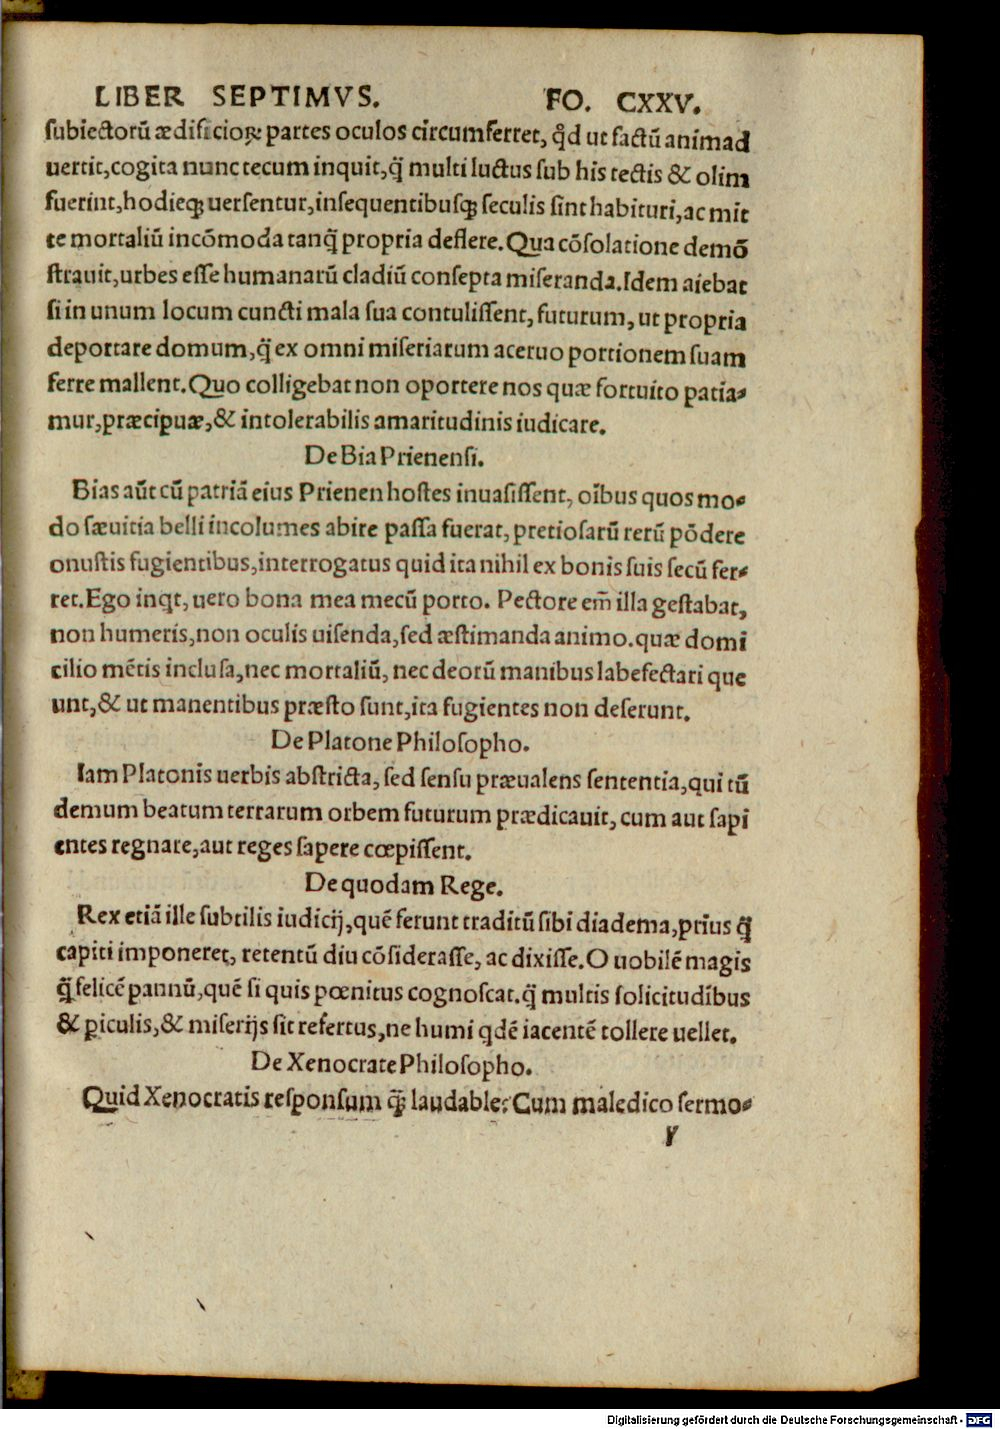 LIBER SEPTIMVS. FO. CXXV.
subiectorū ædificioꝝ partes oculos circumferret, qd̓ ut factū animad
uertit, cogita nunc tecum inquit, q̃ multi luctus sub his tectis & olim
fuerint, hodieqꝫ uersentur, insequentibusqꝫ seculis sint habituri, ac mit
te mortaliū incōmoda tanq̃ propria deflere. Qua cōsolatione demō
strauit, urbes esse humanarū cladiū consepta miseranda. Idem aiebat
si in unum locum cuncti mala sua contulissent, futurum, ut propria
deportare domum, q̃ ex omni miseriarum aceruo portionem suam
ferre mallent. Quo colligebat non oportere nos quæ fortuito patia-
mur, præcipuæ, & intolerabilis amaritudinis iudicare.
De Bia Prienensi.
Bias aūt cū patriā eius Prienen hostes inuasissent, oībus quos mo-
do sæuitia belli incolumes abire passa fuerat, pretiosarū rerū pōdere
onustis fugientibus, interrogatus quid ita nihil ex bonis suis secū fer-
ret. Ego inqt, uero bona mea mecū porto. Pectore em̄ illa gestabat,
non humeris, non oculis uisenda, sed æstimanda animo. quæ domi
cilio mētis inclusa, nec mortaliū, nec deorū manibus labefectari que
unt, & ut manentibus præsto sunt, ita fugientes non deserunt.
De Platone Philosopho.
Iam Platonis uerbis abstricta, sed sensu præualens sententia, qui tū
demum beatum terrarum orbem futurum prædicauit, cum aut sapi
entes regnare, aut reges sapere cœpissent.
De quodam Rege.
Rex etiā ille subtilis iudicij, quē ferunt traditū sibi diadema, prius q̃
capiti imponeret, retentū diu cōsiderasse, ac dixisse. O uobilē magis
q̃ felicē pannū, quē si quis pœnitus cognoscat. q̃ multis solicitudibus
& ꝑiculis, & miserijs sit refertus, ne humi qdē iacentē tollere uellet.
De Xenocrate Philosopho.
Quid Xenocratis responsum q̃ laudabile: Cum maledico sermo-
y
Digitalisierung gefördert durch die Deutsche Forschungsgemeinschaft - DFG